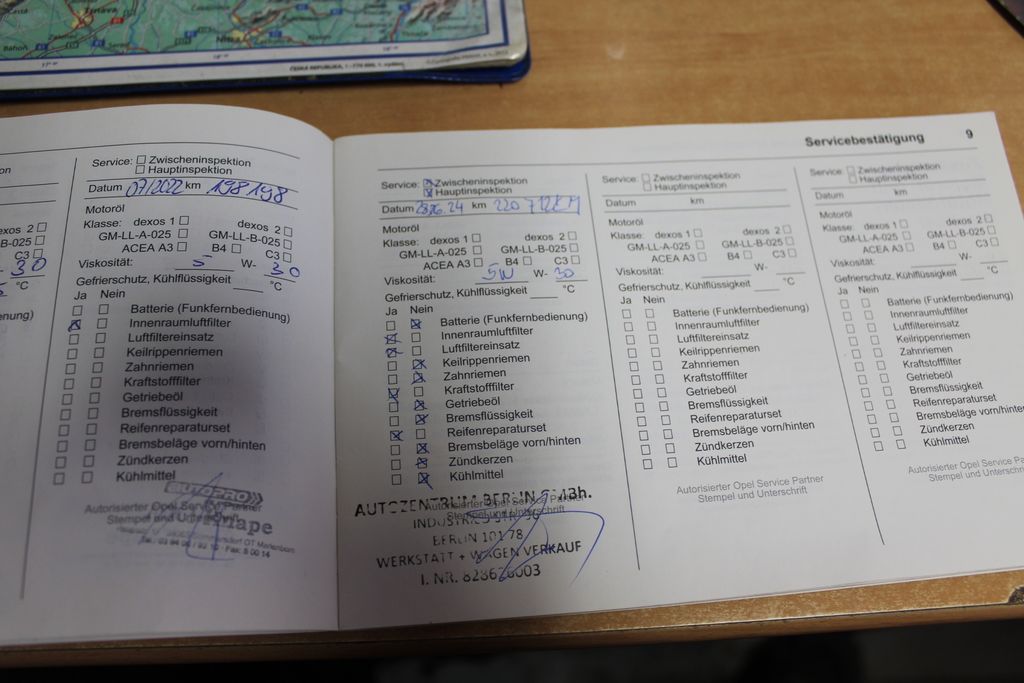 Trnava
Nitra
ČESKÁ REPUBLIKA, 1 : 770 000, 1. vydání
Service: Zwischeninspektion
Hauptinspektion
Datum 07/2022 km 198 198
Motoröl
Klasse: dexos 1 dexos 2
GM-LL-A-025 GM-LL-B-025
ACEA A3 B4 C3
Viskosität: 5 W- 30
Gefrierschutz, Kühlflüssigkeit °C
Ja Nein
Batterie (Funkfernbedienung)
Innenraumluftfilter
Luftfiltereinsatz
Keilrippenriemen
Zahnriemen
Kraftstofffilter
Getriebeöl
Bremsflüssigkeit
Reifenreparaturset
Bremsbeläge vorn/hinten
Zündkerzen
Kühlmittel
AUTOPRO
Autorisierter Opel Service Partner
Stempel und Unterschrift
Servicebestätigung 9
Service: Zwischeninspektion
Hauptinspektion
Datum 28.06.24 km 220 712KM
Motoröl
Klasse: dexos 1 dexos 2
GM-LL-A-025 GM-LL-B-025
ACEA A3 B4 C3
Viskosität: 5W W- 30
Gefrierschutz, Kühlflüssigkeit °C
Ja Nein
Batterie (Funkfernbedienung)
Innenraumluftfilter
Luftfiltereinsatz
Keilrippenriemen
Zahnriemen
Kraftstofffilter
Getriebeöl
Bremsflüssigkeit
Reifenreparaturset
Bremsbeläge vorn/hinten
Zündkerzen
Kühlmittel
Autorisierter Opel Service Partner
Stempel und Unterschrift
AUTOZENTRUM BERLIN GmBh.
BERLIN 10178
WERKSTATT + WAGEN VERKAUF
Service: Zwischeninspektion
Hauptinspektion
Datum km
Motoröl
Klasse: dexos 1 dexos 2
GM-LL-A-025 GM-LL-B-025
ACEA A3 B4 C3
Viskosität: W-
Gefrierschutz, Kühlflüssigkeit °C
Ja Nein
Batterie (Funkfernbedienung)
Innenraumluftfilter
Luftfiltereinsatz
Keilrippenriemen
Zahnriemen
Kraftstofffilter
Getriebeöl
Bremsflüssigkeit
Reifenreparaturset
Bremsbeläge vorn/hinten
Zündkerzen
Kühlmittel
Autorisierter Opel Service Partner
Stempel und Unterschrift
Service: Zwischeninspektion
Hauptinspektion
Datum km
Motoröl
Klasse: dexos 1 dexos 2
GM-LL-A-025 GM-LL-B-025
ACEA A3 B4 C3
Viskosität: W-
Gefrierschutz, Kühlflüssigkeit °C
Ja Nein
Batterie (Funkfernbedienung)
Innenraumluftfilter
Luftfiltereinsatz
Keilrippenriemen
Zahnriemen
Kraftstofffilter
Getriebeöl
Bremsflüssigkeit
Reifenreparaturset
Bremsbeläge vorn/hinten
Zündkerzen
Kühlmittel
Autorisierter Opel Service Pa
Stempel und Unterschrift